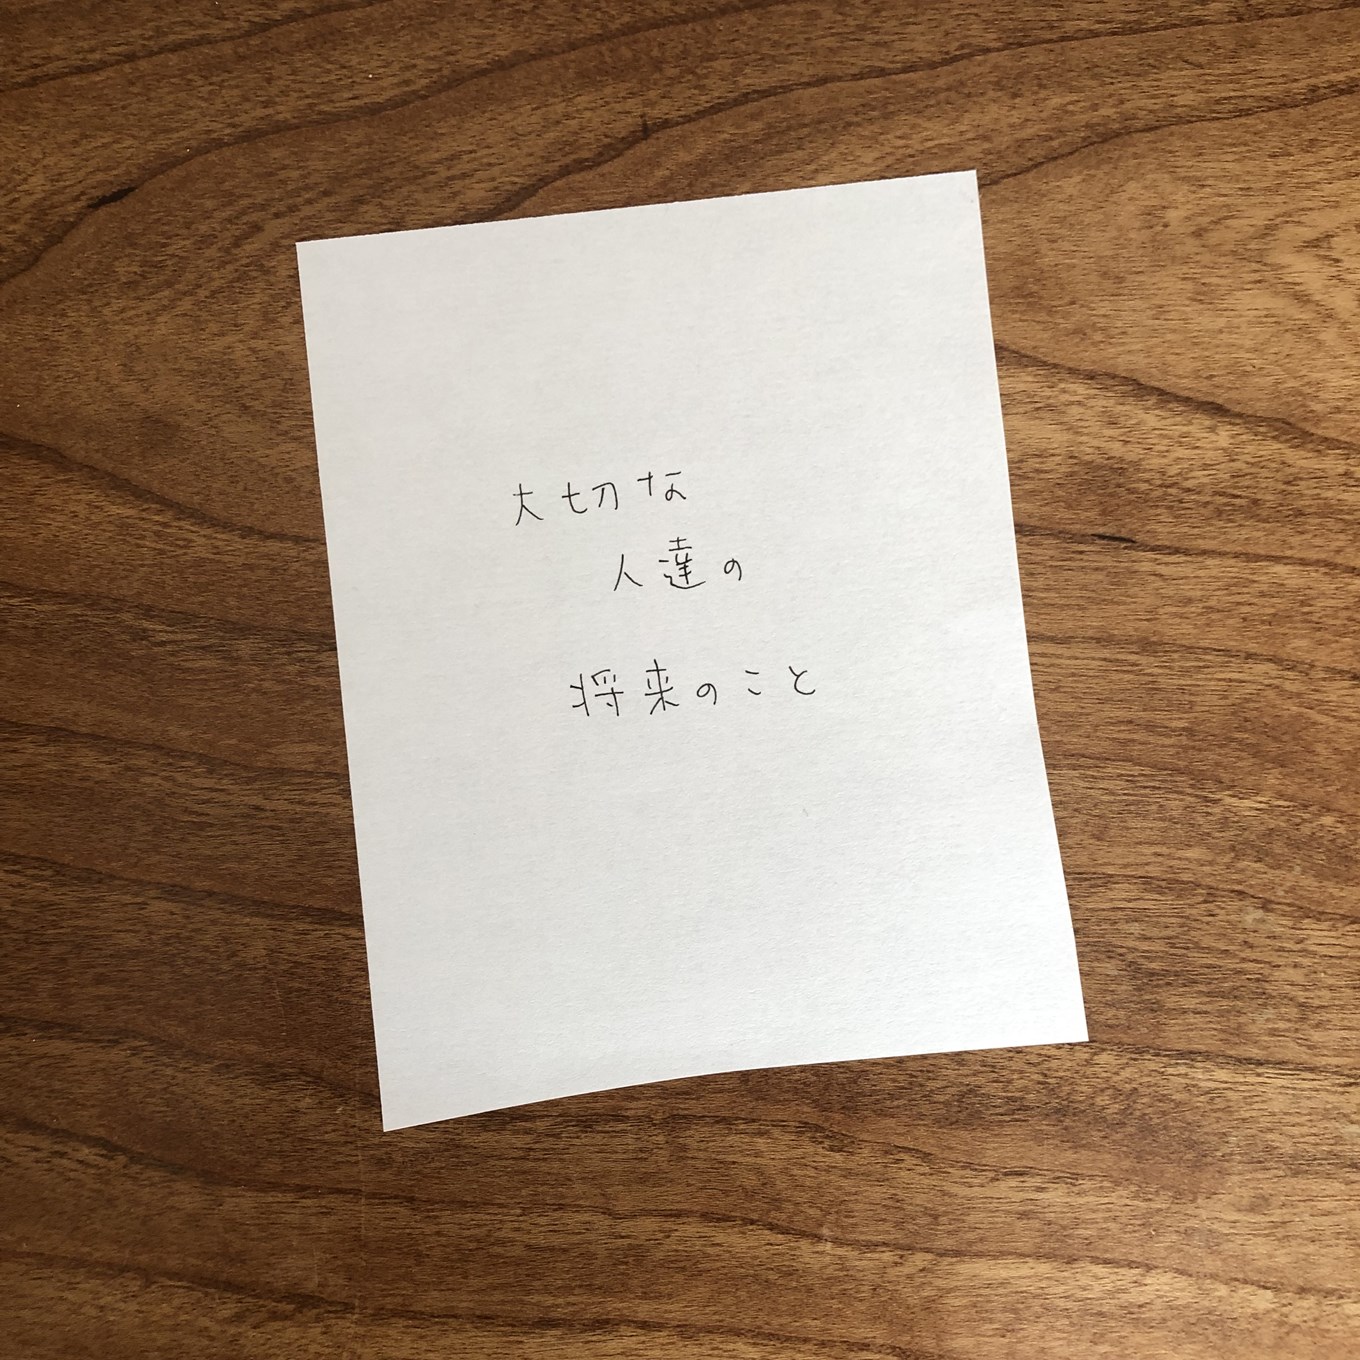 大切な
人達の
将来のこと